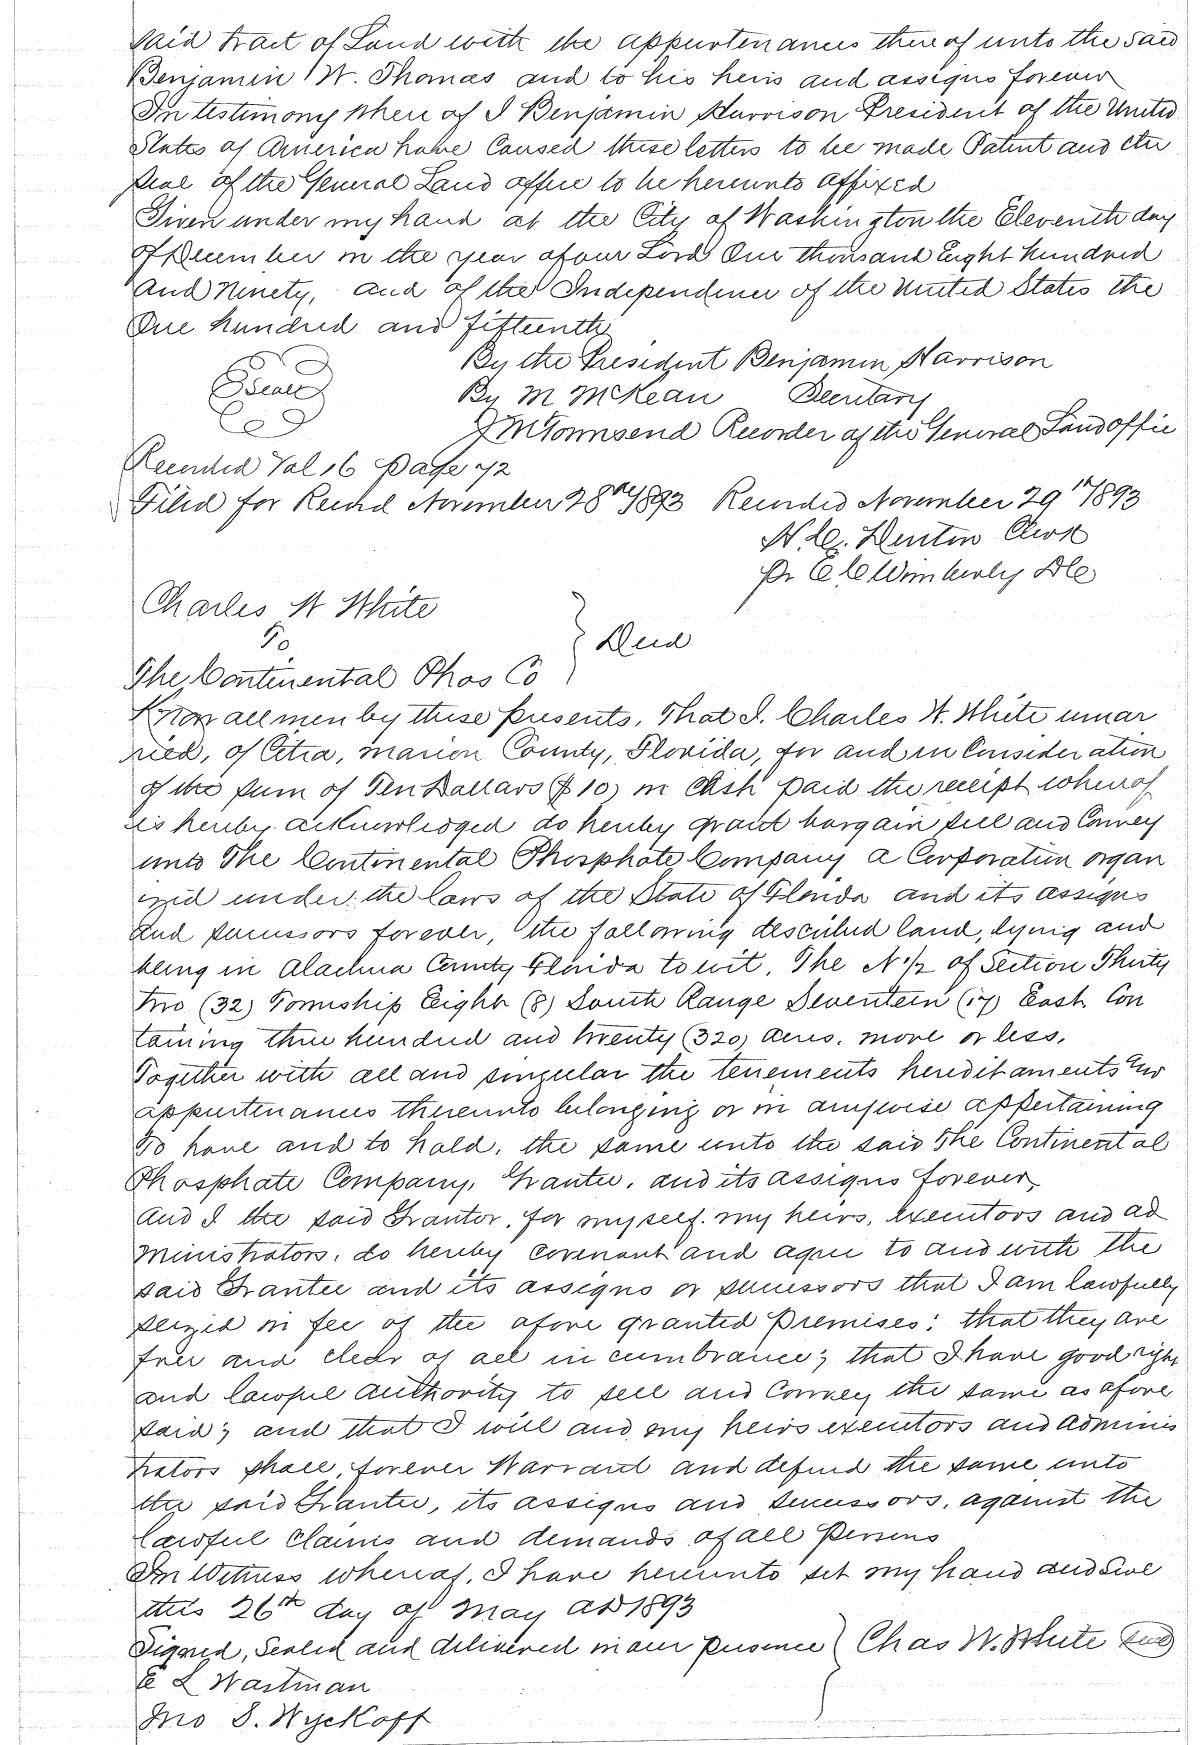 said tract of Land with the appurtenances thereof unto the said
Benjamin W. Thomas and to his heirs and assigns forever
In testimony where of I Benjamin Harrison President of the United
States of America have Caused these letters to be made Patent and the
seal of the General Land office to be hereunto affixed
Given under my hand at the City of Washington the Eleventh day
of December in the year of our Lord One thousand Eight hundred
And Ninety, and of the Independence of the United States the
One hundred and fifteenth
By the President Benjamin Harrison
Seal
By M McKean Secretary
J M Townsend Recorder of the General Land office
Recorded Vol 16 Page 72
Filed for Record November 28th 1893 Recorded November 29th 1893
H. C. Denton Clerk
Pr E C Wimberly DC
Charles W White
To
The Continental Phos Co
} Deed
Know all men by these presents, That I. Charles W. White unmar
ried, of Citra, Marion County, Florida, for and in Consideration
of the sum of Ten Dollars ($10) in Cash paid the receipt whereof
is hereby acknowledged do hereby grant bargain sell and Convey
unto The Continental Phosphate Company a Corporation organ
ized under the laws of the State of Florida and its assigns
and successors forever, the following described land, lying and
being in Alachua County Florida to wit. The N 1/2 of Section Thirty
two (32) Township Eight (8) South Range Seventeen (17) East Con
taining three hundred and twenty (320) acres. more or less.
Together with all and singular the tenements hereditaments and
appurtenances thereunto belonging or in anywise appertaining
To have and to hold, the same unto the said The Continental
Phosphate Company, Grantee, and its assigns forever,
And I the said Grantor, for myself. my heirs, executors and ad
ministrators, do hereby covenant and agree to and with the
said Grantee and its assigns or successors that I am lawfully
seized in fee of the afore granted premises; that they are
free and clear of all incumbrance; that I have good right
and lawful authority to sell and Convey the same as afore
said; and that I will and my heirs executors and adminis
trators shall, forever Warrant and defend the same unto
the said Grantee, its assigns and successors, against the
lawful claims and demands of all persons
In Witness whereof, I have hereunto set my hand and Seal
this 26th day of May AD 1893
Signed, Sealed and delivered in our presence } Chas W. White Seal
E L Wartman
Jno S. Wyckoff